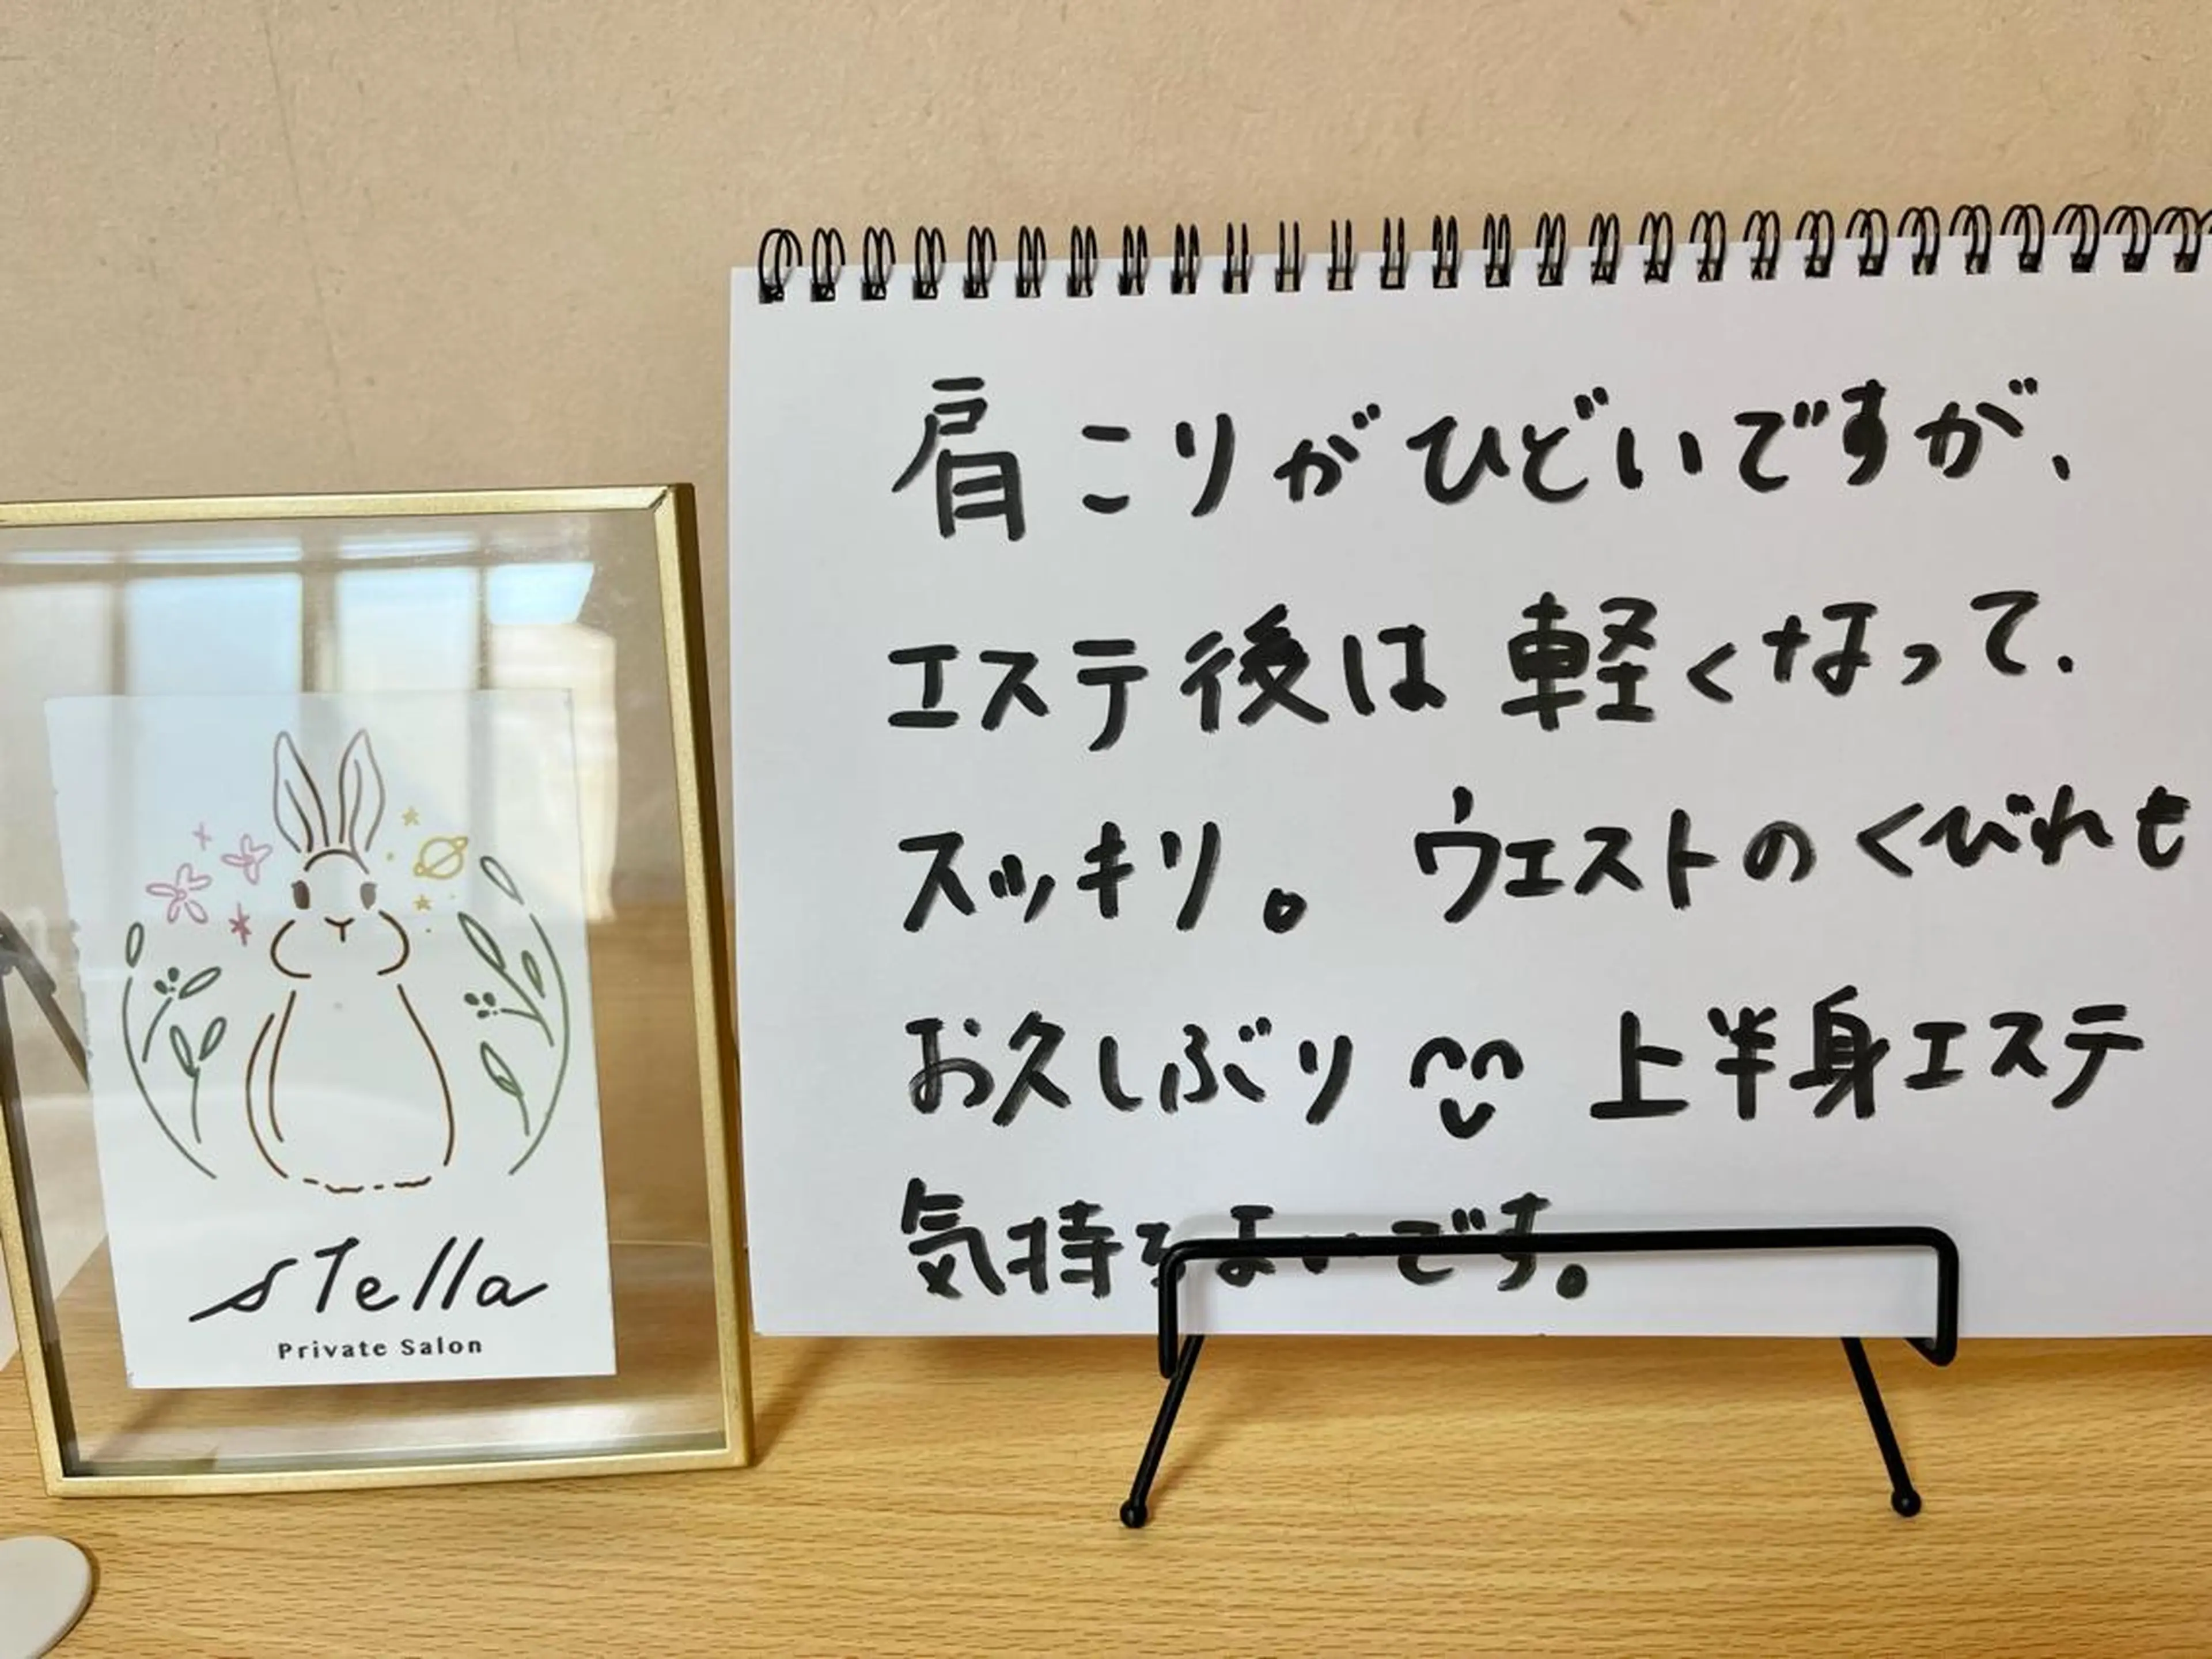 stella
Private Salon
肩こりがひどいですが、
エステ後は軽くなって、
スッキリ。ウエストのくびれも
お久しぶり 上半身エステ
気持ちよいです。